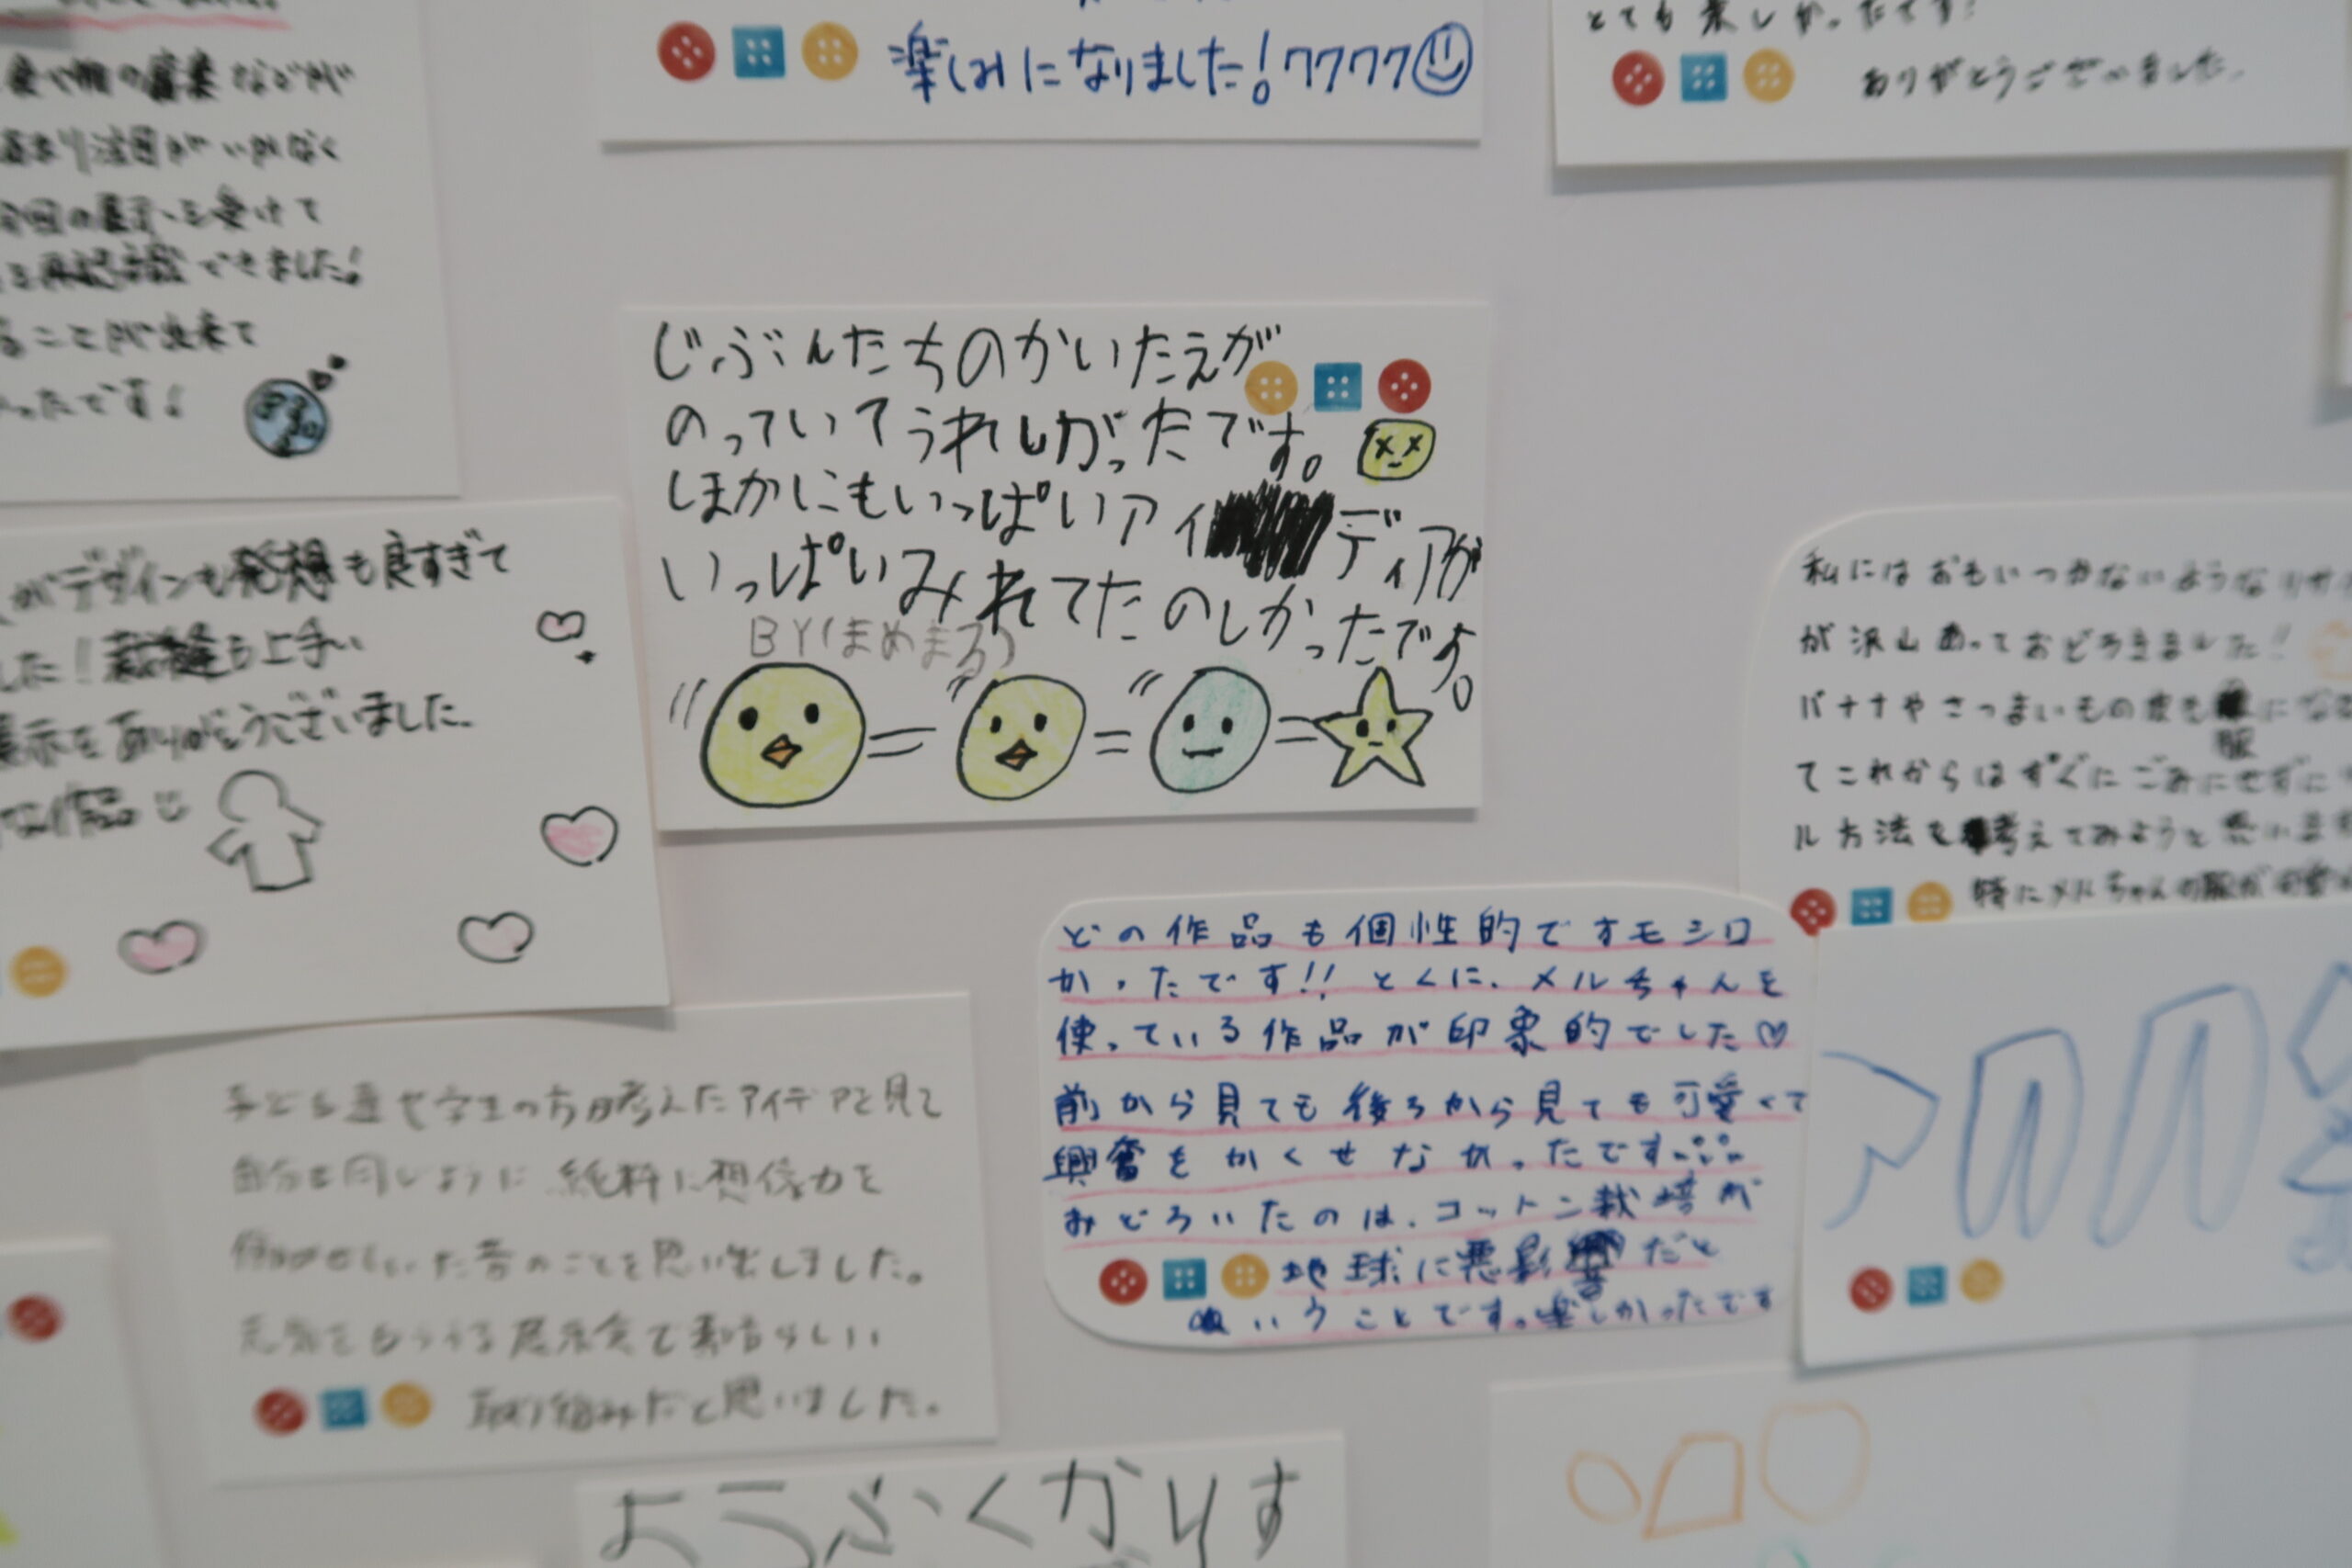 楽しみになりました!7777
ありがとうございました。
注目がいかなく
を受けて
再認識できました!
ることが出来て
ったです!
じぶんたちのかいたえが
のっていてうれしかったです。
ほかにもいっぱいアイディアが
いっぱいみれてたのしかったです。
BY(まめまる)
がデザインも発想も良すぎて
した!裁縫も上手い
展示をありがとうございました。
な作品
私にはおもいつかないようなリサイ
が沢山あっておどろきました!!
バナナやさつまいもの皮も
服
てこれからはすぐにごみにせずに
ル方法を考えてみようと思います
特にメルちゃんの服が可愛
どの作品も個性的ですモシロ
かったです!!とくに、メルちゃんを
使っている作品が印象的でした♡
前から見ても後ろから見ても可愛くて
興奮をかくせなかったです
おどろいたのは、コットン栽培が
地球に悪影響だと
いうことです。楽しかったです
子ども達や学生の方が考えたアイデアを見て
自分も同じように純粋に想像力を
働かせていた昔のことを思い出しました。
元気をもらえる展示会で素晴らしい
取り組みだと思いました。
ようふくかりす